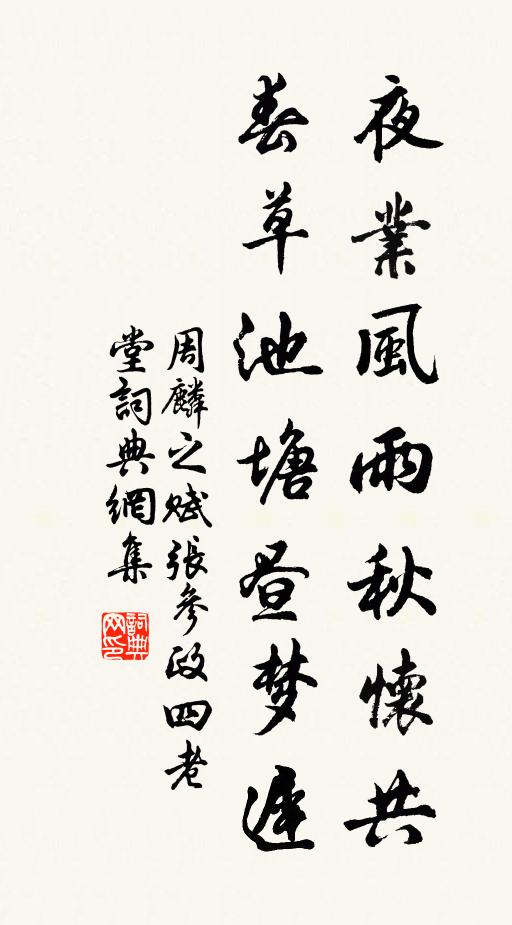 夜業風雨秋懷共
春草池塘昼梦遲
周麟之賦張參政四老
堂詞典網集
詞典网印